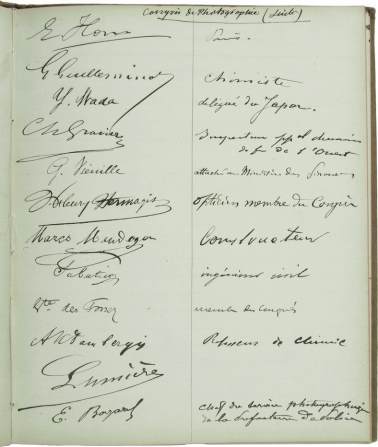 Congrès de Photographie (suite)
E Horn Paris.
G Guilleminot chimiste
Y. Wada délégué du Japon.
Ch Gravier Inspecteur ppal chemins
de fer de l'Ouest
G. Vieuille attaché au Ministère des Finances
Fleury Hermagis Opticien membre du Congrès
Marco Mendoza Constructeur
ingénieur civil
Vte des membre du congrès
Professeur de chimie
Lumière
E. Chef du service photographique
de la Préfecture de police